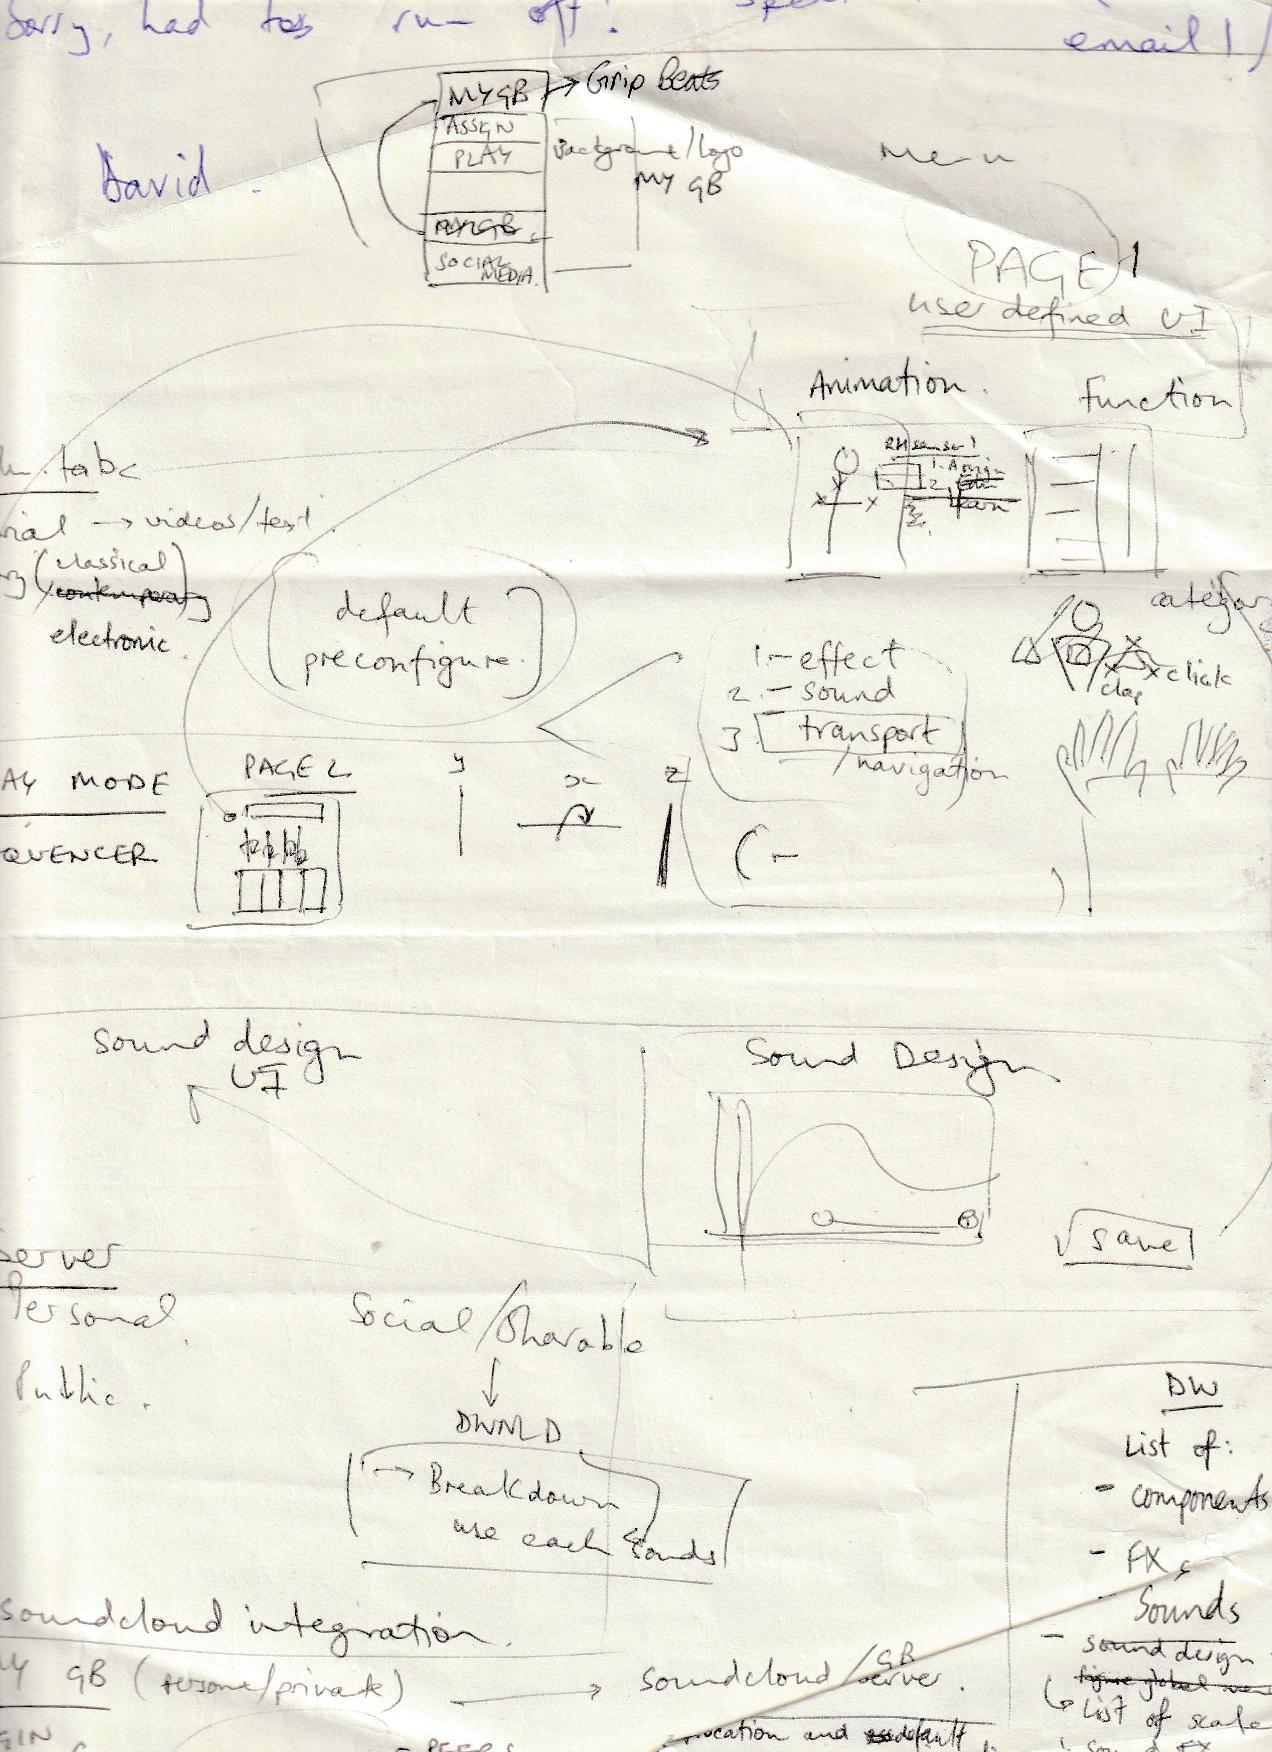 Sorry, had to run off!
email!)
David.
MY GB → Grip Beats
ASSGN
PLAY
Background/Logo
MY GB
MYGB
SOCIAL
MEDIA
Menu
PAGE 1
user defined UI
Animation.
Function
1. Assign
2.
tabc
→ videos/text
(classical)
contemporary
electronic.
default
preconfigure.
1. - effect
2. - sound
3 transport
/navigation
click
clap
MODE
PAGE 2
y
x
z
QUENCER
(-
)
Sound design
UI
Sound Design
√save
Server
Personal
Public.
Social/Sharable
↓
DWNLD
→ Breakdown
use each Sounds
DW
List of:
- components
- FX
- Sounds
- sound design
↳ List of scale
soundcloud integration.
GB (persona/private) → soundcloud/GB server.
GIN
- PEERS
and default